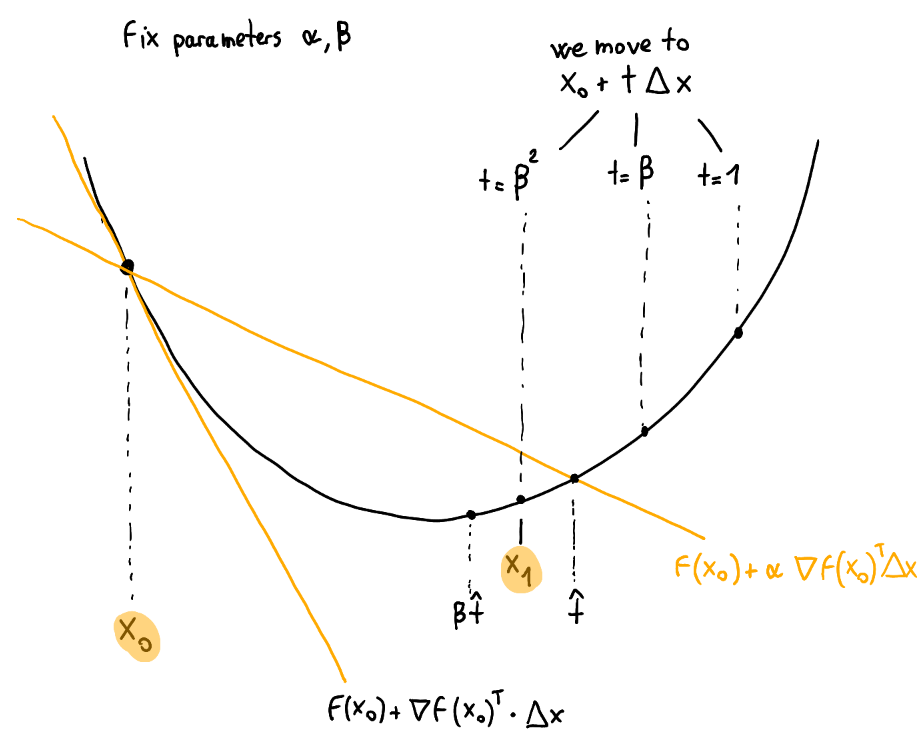 Fix parameters α, β
we move to
x₀ + t Δx
t=β²
t=β
t=1
x₁
F(x₀)+α ∇F(x₀)ᵀΔx
βt̂
t̂
x₀
F(x₀)+ ∇F(x₀)ᵀ· Δx